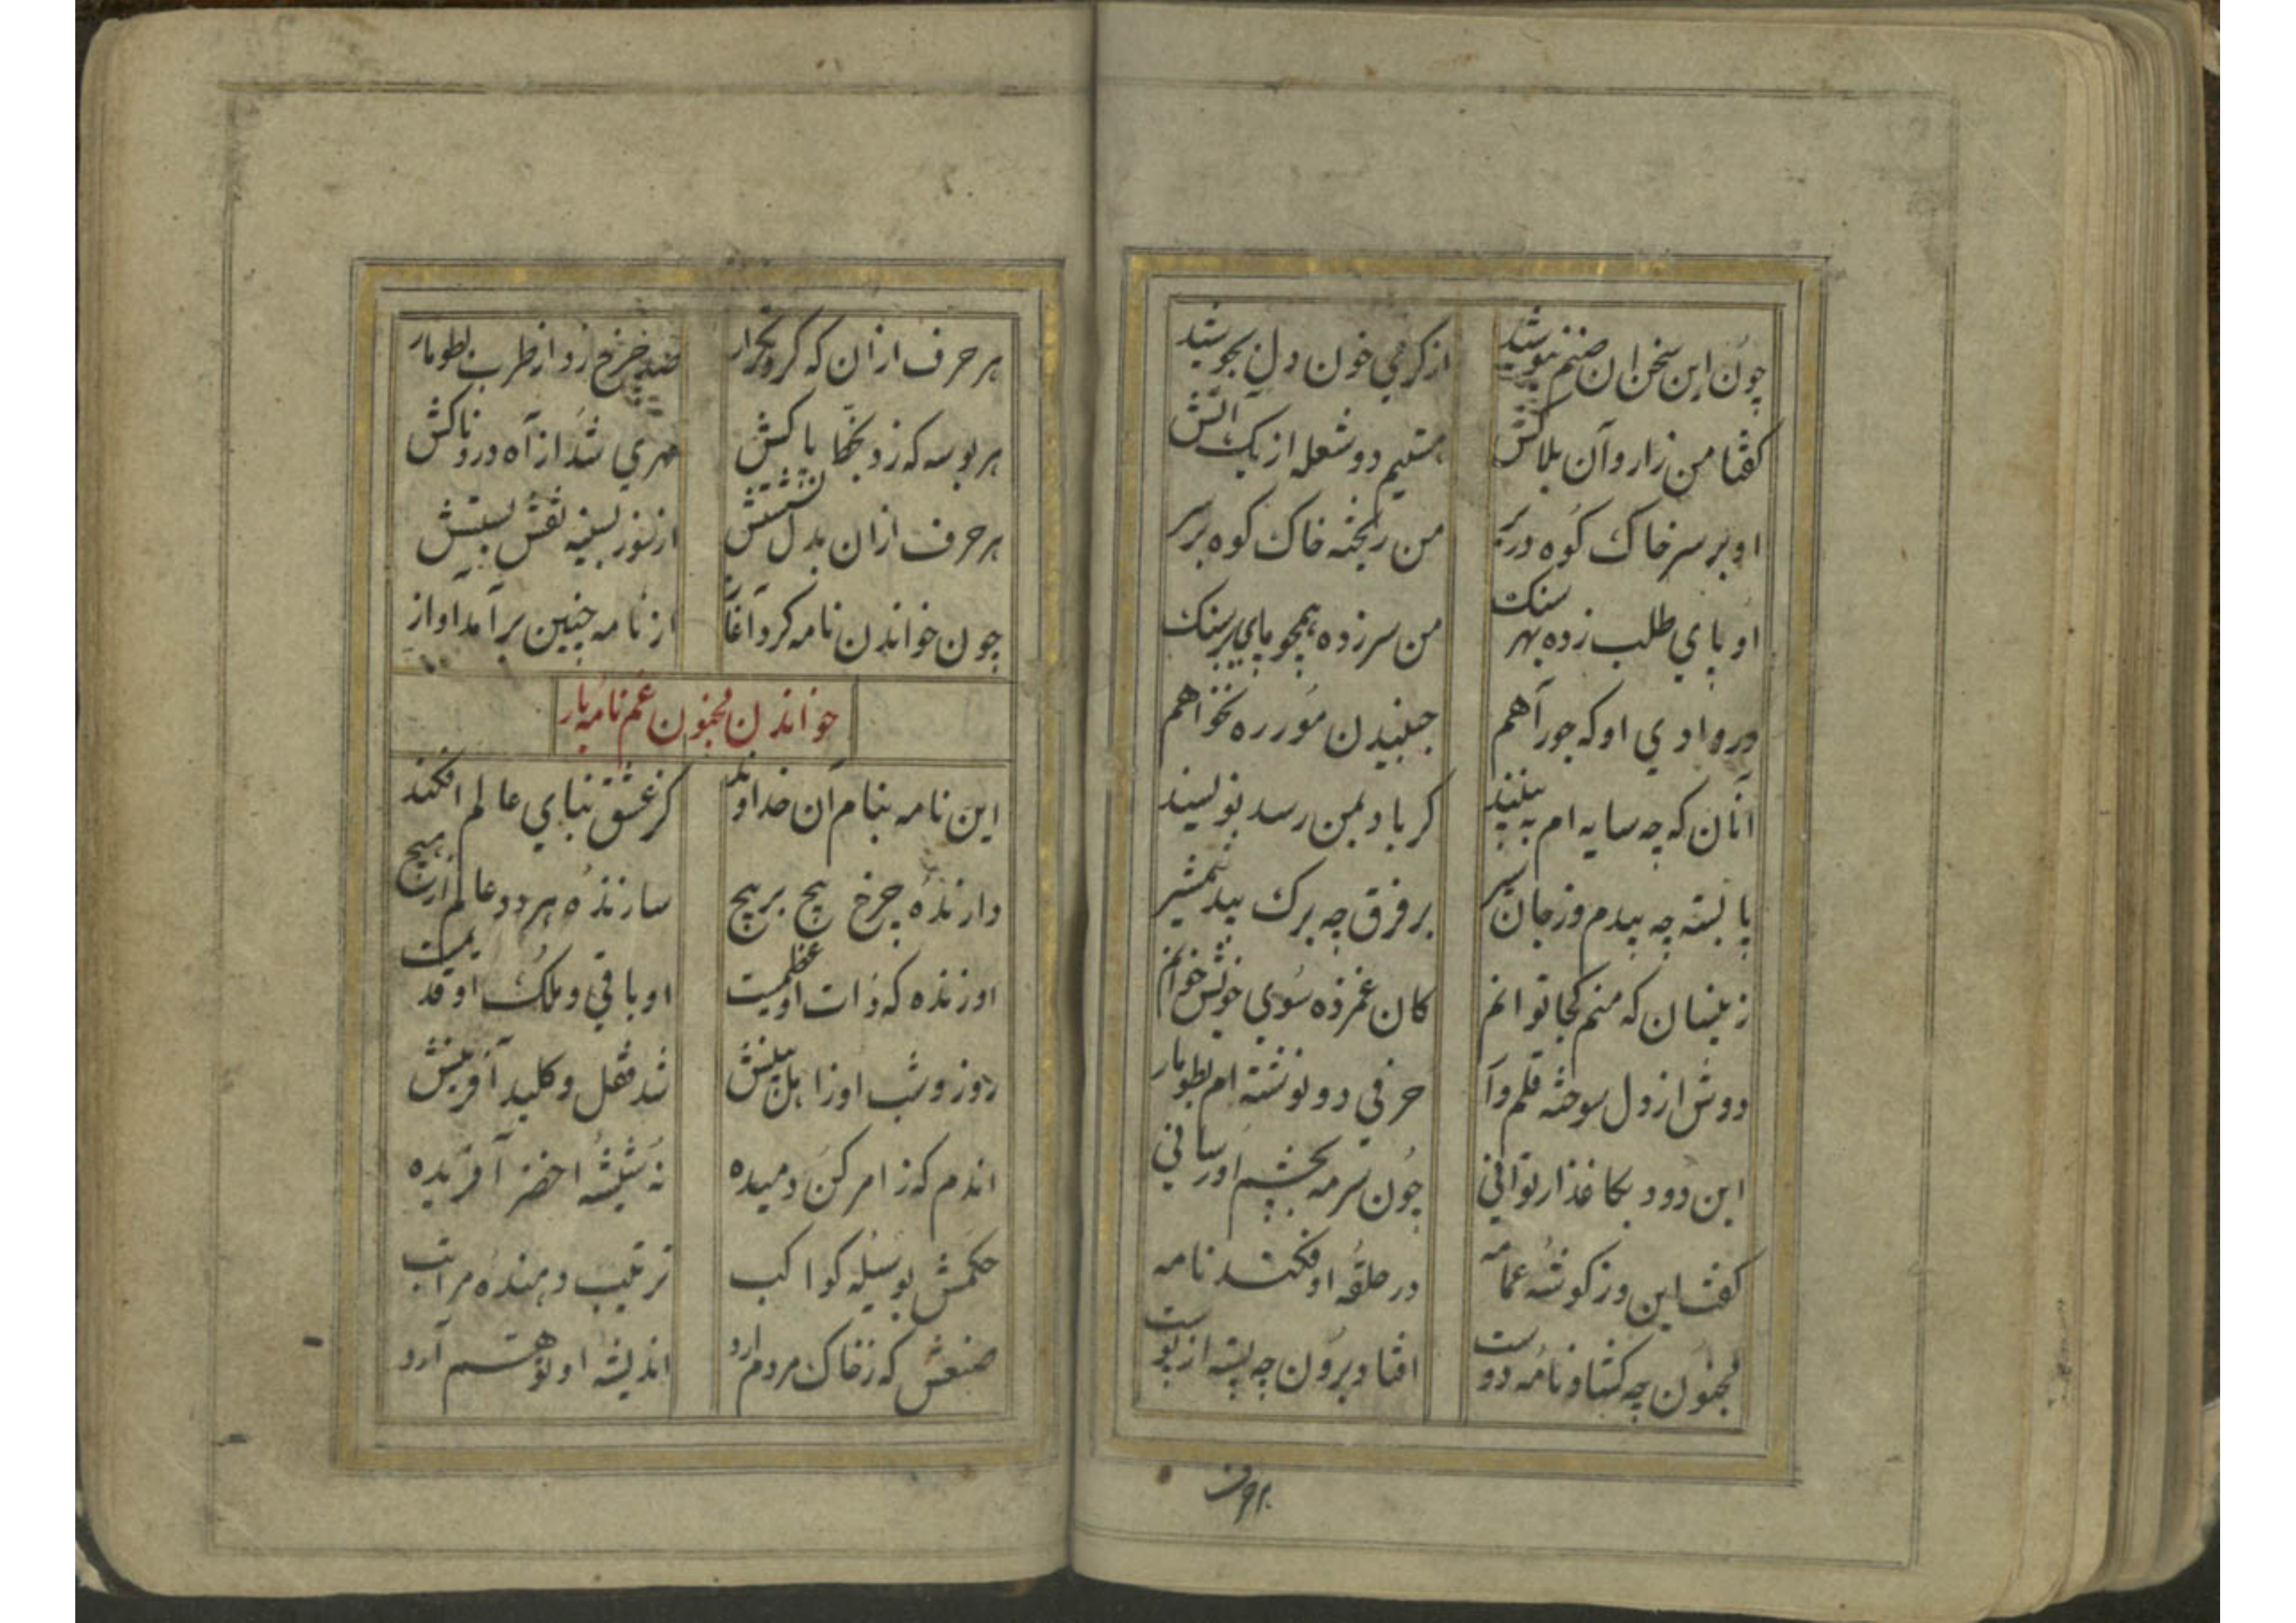 چون این سخن ان صنم نیوشید از کرمی خون دل بجوشید
کفتا من زار و آن بلاکش هستیم دو شعله از یک آتش
او بر سر خاک کوه در بر من ریخته خاک کوه بر سر
او پای طلب زده بهر سنک من سر زده همچو پای بر سنک
در وادی او که جور آهم جنبیدن مور ره نخواهم
آنان که چه سایه ام به بینند کر باد بمن رسد نویسند
پا بسته چه بیدم و ز جان سیر بر فرق چه برک بید شمشیر
زینسان که منم کجا توانم کان غمزده سوی خویش خوانم
دوش از دل سوخته قلم وآر حرفی دو نوشته ام بطومار
این دود بکاغذ ار توانی چون سرمه بچشم او رسانی
کفت این و ز کوشه عمامه در حلقه او فکند نامه
مجنون چه کشاد نامه دوست افتاد برون چه پسته از پوست
هر حرف
هر حرف از آن که کرد تکرار صد چرخ زد از طرب بطومار
هر بوسه که زد بخاک پاکش مهری شد از آه دردناکش
هر حرف از آن بدل نشستش از سوز بسینه نقش بستش
چون خواندن نامه کرد آغاز از نامه چنین بر آمد آواز
خواندن مجنون غم نامه یار
این نامه بنام آن خداوند کز عشق بنای عالم افکند
دارنده چرخ پیچ بر پیچ سازنده هر دو عالم از هیچ
او زنده که ذات او عظیمست او باقی و ملک او قدیمست
روز و شب او ز اهل بینش شد قفل و کلید آفرینش
اندم که ز امر کن دمیده نه شیشه اخضر آفریده
حکمش بوسیله کواکب ترتیب دهنده مراتب
صنعش که ز خاک مردم ارد اندیشه او توهم آرد